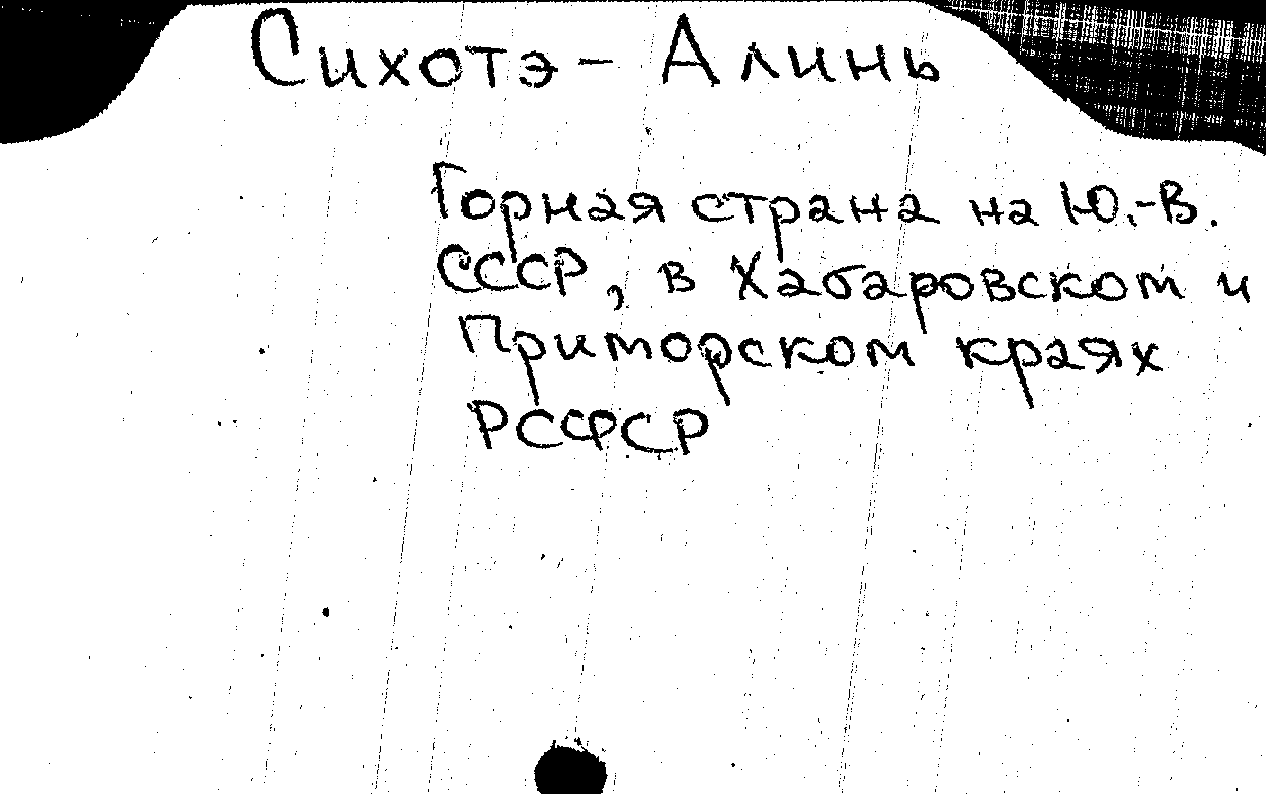 Сихотэ-Алинь
Горная страна на Ю.-В.
СССР, в Хабаровском и
Приморском краях
РСФСР